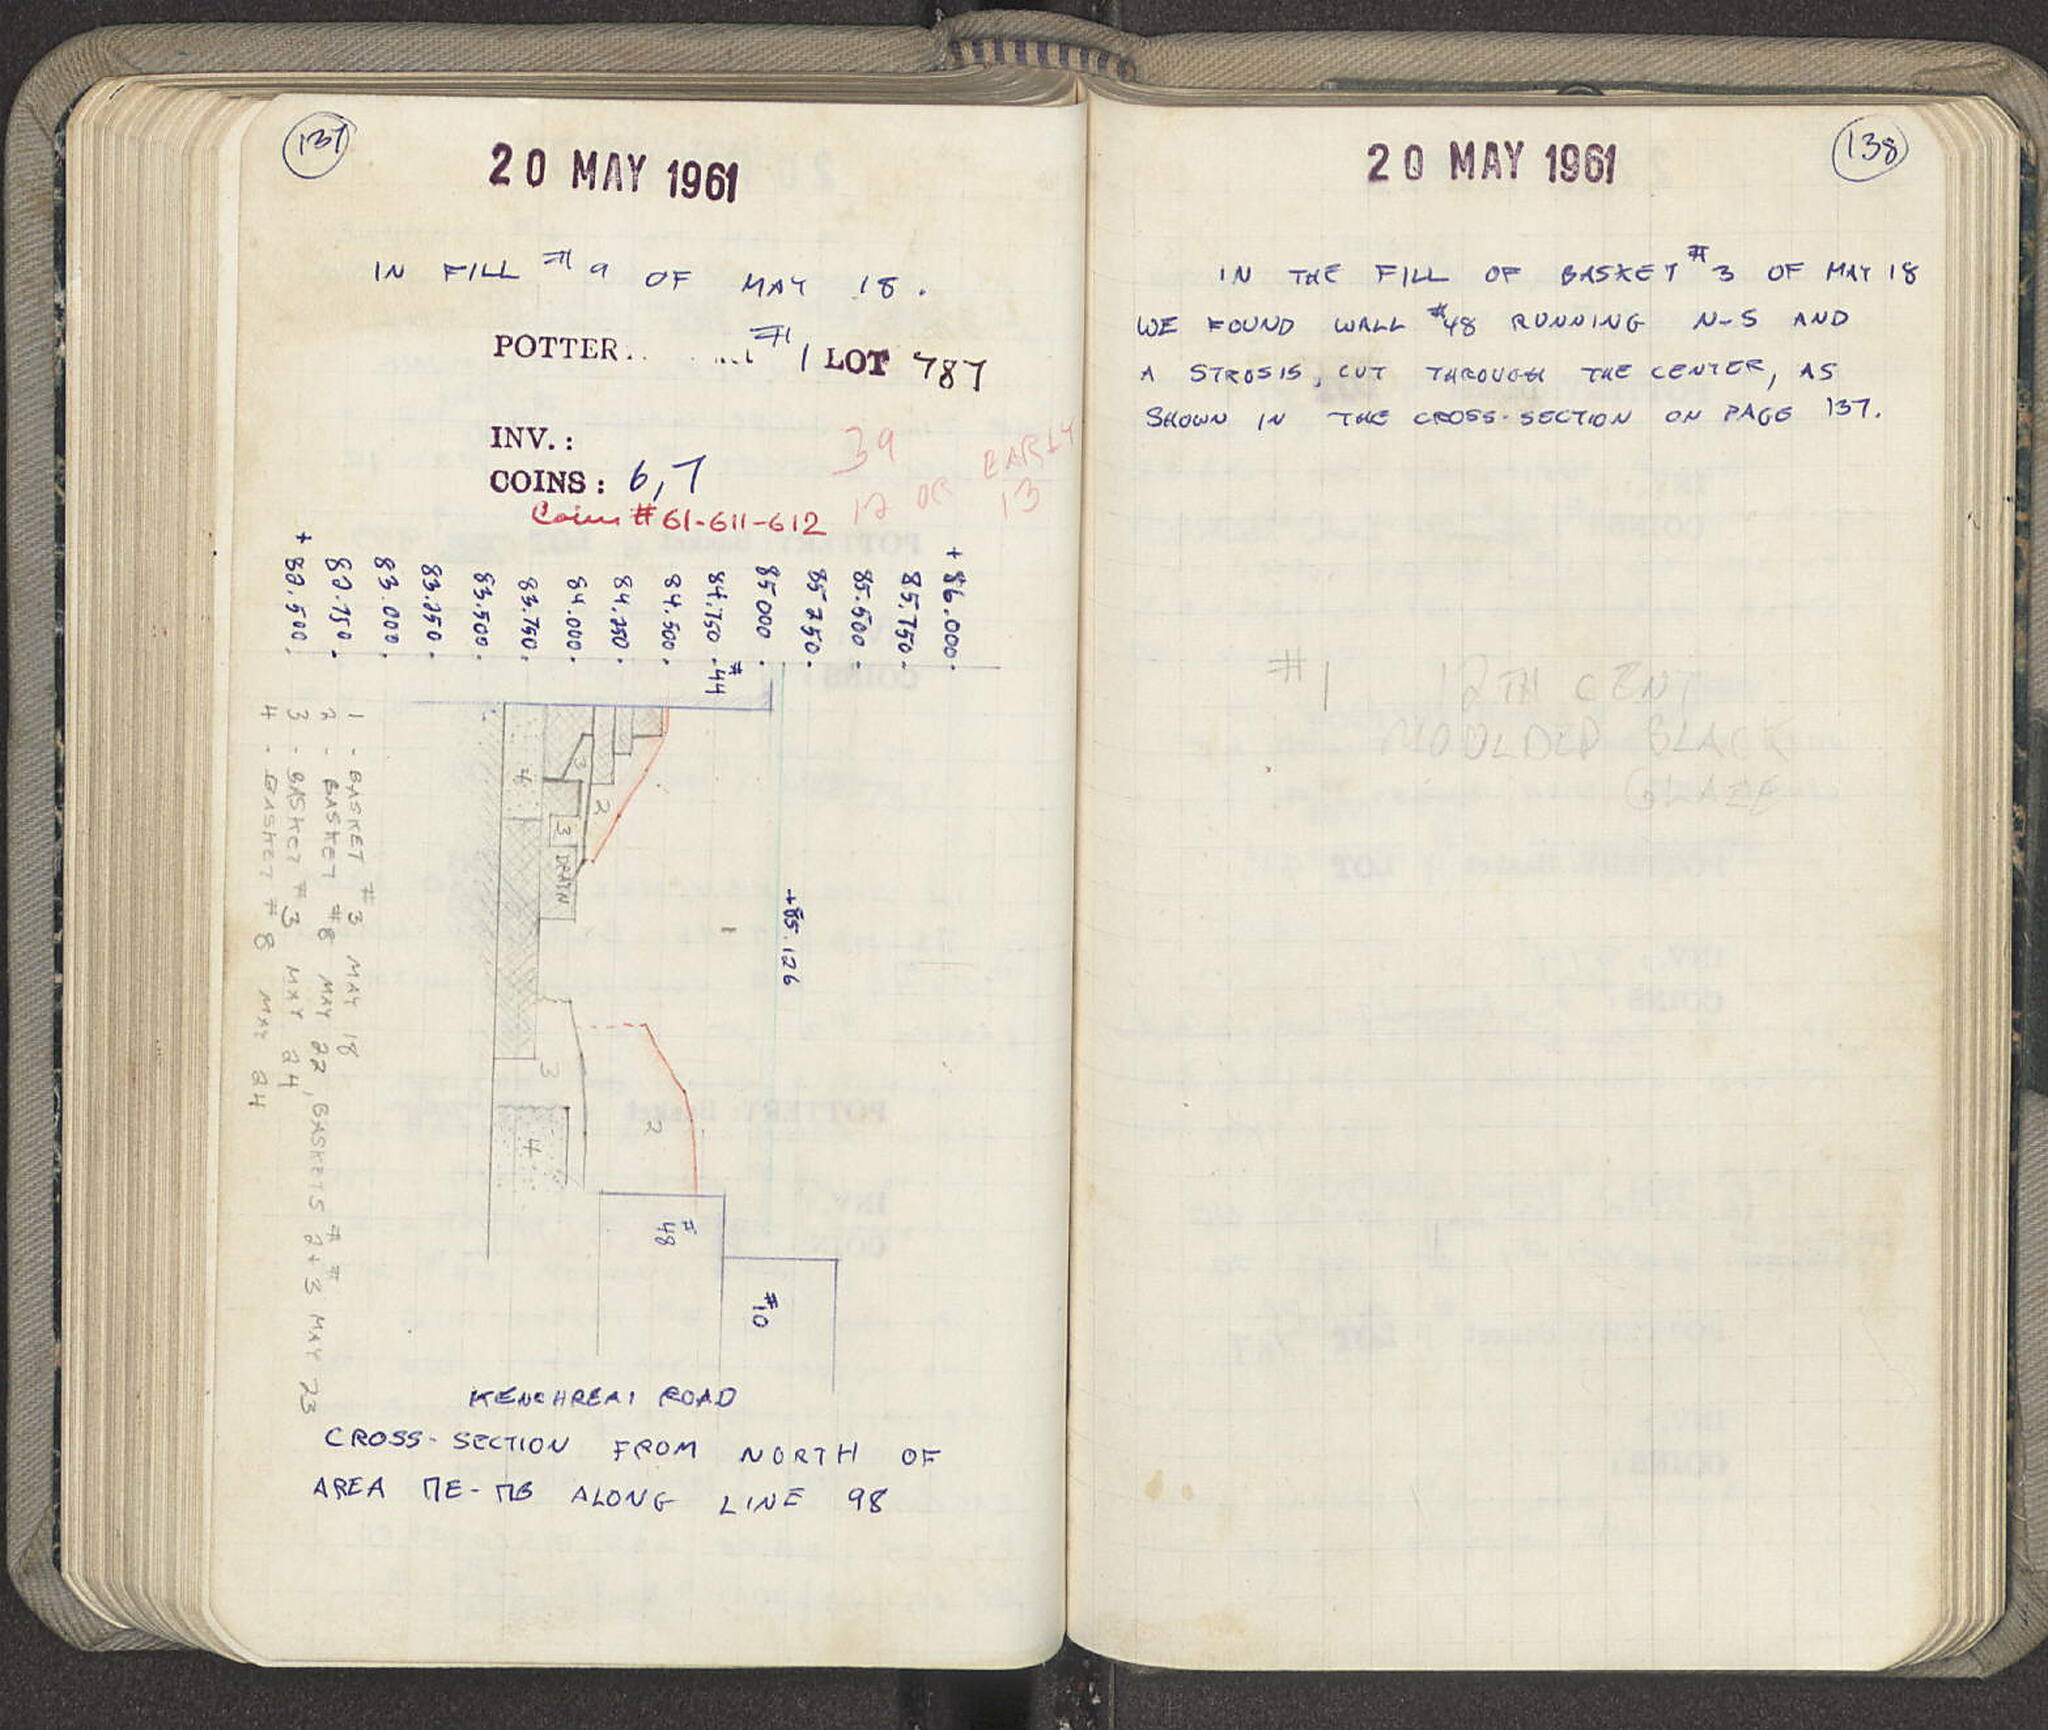 137
20 MAY 1961
IN FILL #9 OF MAY 18.
POTTER.. ... #1 LOT 787
INV.:
39
EARLY
COINS: 6,7
12 OR 13
Coins #61-611-612
+ 86.000.
85.750.
85.500.
85.250.
85.000.
84.750.
84.500.
84.250.
84.000.
83.750.
83.500.
83.250.
83.000.
82.750.
+ 82.500.
#44
+85.126
3
2
4
3
DRAIN
3
2
4
#48
#10
1 - BASKET #3 MAY 18
2 - BASKET #8 MAY 22, BASKETS #2+#3 MAY 23
3 - BASKET #3 MAY 24
4 - BASKET #8 MAY 24
KENCHREAI ROAD
CROSS-SECTION FROM NORTH OF
AREA ΠΕ-ΠΒ ALONG LINE 98
20 MAY 1961
138
IN THE FILL OF BASKET #3 OF MAY 18
WE FOUND WALL #48 RUNNING N-S AND
A STROSIS, CUT THROUGH THE CENTER, AS
SHOWN IN THE CROSS-SECTION ON PAGE 137.
#1 12TH CENT
MOULDED BLACK
GLAZE